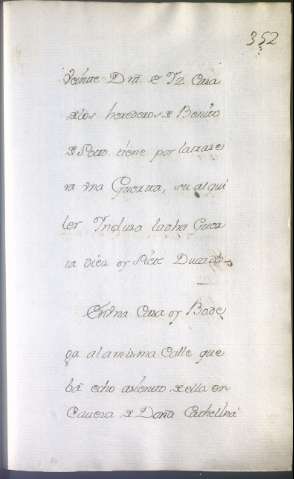 352
veinte Dm e Iz. Casa
de los herederos de Benito
de Soto tiene por la trase
ra una Guerta, su alqui
ler Incluso la dha Guer
ta diez y siete Ducados
En una Casa y Bode
ga a la misma Calle que
ha echo asiento de ella en
Cavesa de Doña